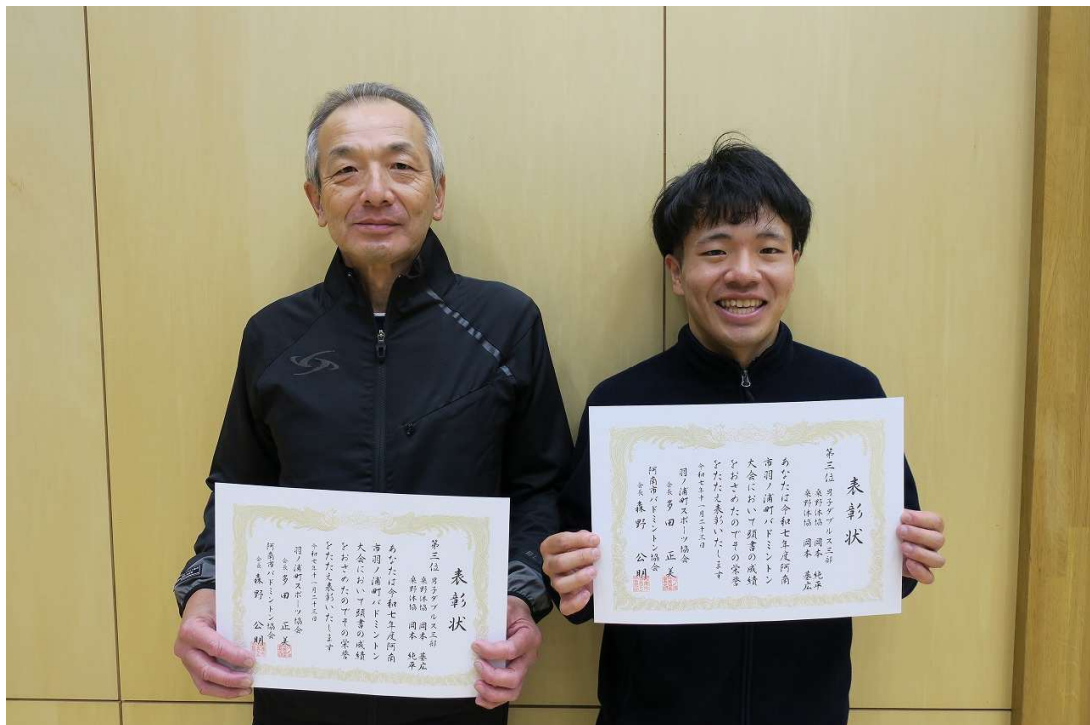 表彰状
第三位 男子ダブルス三部
桑野体協 岡本 基広
桑野体協 岡本 純平
あなたは令和七年度阿南
市羽ノ浦町バドミントン
大会において頭書の成績
をおさめたのでその栄誉
をたたえ表彰いたします
令和七年十一月二十三日
羽ノ浦町スポーツ協会
会長 多田 正美
阿南市バドミントン協会
会長 森野 公明
表彰状
第三位 男子ダブルス三部
桑野体協 岡本 純平
桑野体協 岡本 基広
あなたは令和七年度阿南
市羽ノ浦町バドミントン
大会において頭書の成績
をおさめたのでその栄誉
をたたえ表彰いたします
令和七年十一月二十三日
羽ノ浦町スポーツ協会
会長 多田 正美
阿南市バドミントン協会
会長 森野 公明